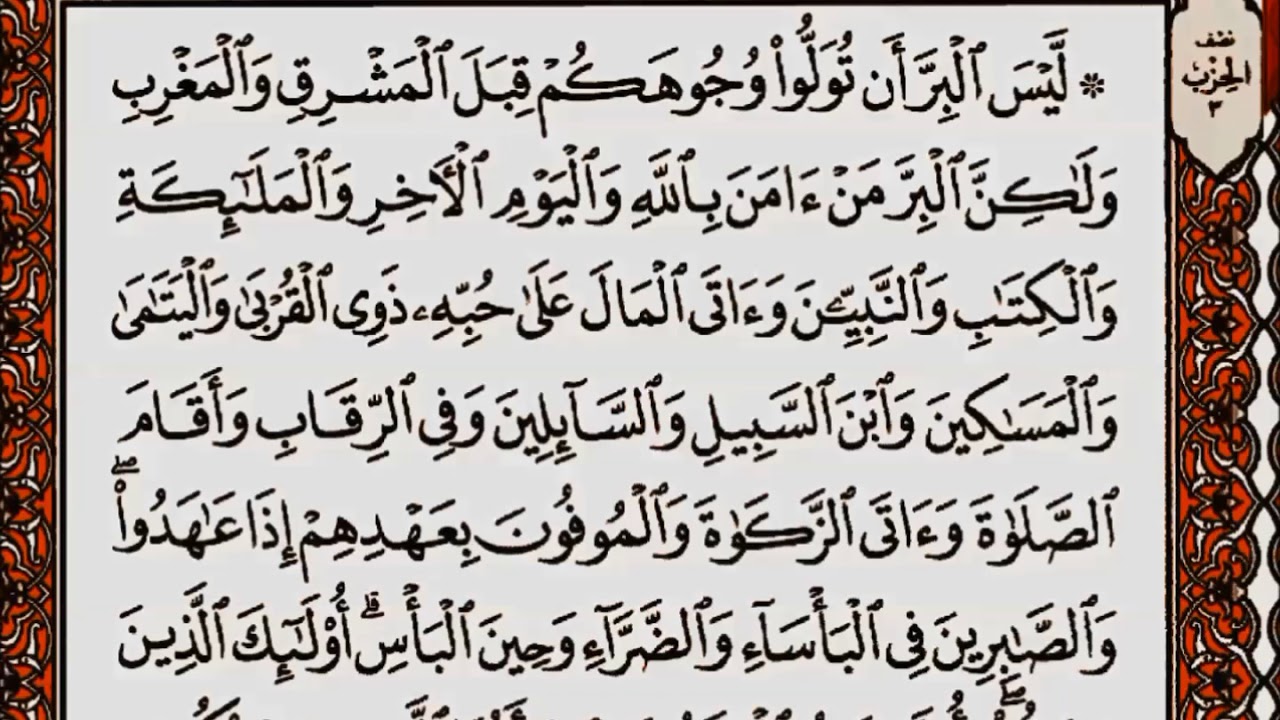 ۞ لَّيْسَ ٱلْبِرَّ أَن تُوَلُّوا۟ وُجُوهَكُمْ قِبَلَ ٱلْمَشْرِقِ وَٱلْمَغْرِبِ
وَلَٰكِنَّ ٱلْبِرَّ مَنْ ءَامَنَ بِٱللَّهِ وَٱلْيَوْمِ ٱلْأَخِرِ وَٱلْمَلَٰٓئِكَةِ
وَٱلْكِتَٰبِ وَٱلنَّبِيِّـۧنَ وَءَاتَى ٱلْمَالَ عَلَىٰ حُبِّهِۦ ذَوِى ٱلْقُرْبَىٰ وَٱلْيَتَٰمَىٰ
وَٱلْمَسَٰكِينَ وَٱبْنَ ٱلسَّبِيلِ وَٱلسَّآئِلِينَ وَفِى ٱلرِّقَابِ وَأَقَامَ
ٱلصَّلَوٰةَ وَءَاتَى ٱلزَّكَوٰةَ وَٱلْمُوفُونَ بِعَهْدِهِمْ إِذَا عَٰهَدُوا۟ ۖ
وَٱلصَّٰبِرِينَ فِى ٱلْبَأْسَآءِ وَٱلضَّرَّآءِ وَحِينَ ٱلْبَأْسِ ۗ أُو۟لَٰٓئِكَ ٱلَّذِينَ
نصف
الحزب
٣